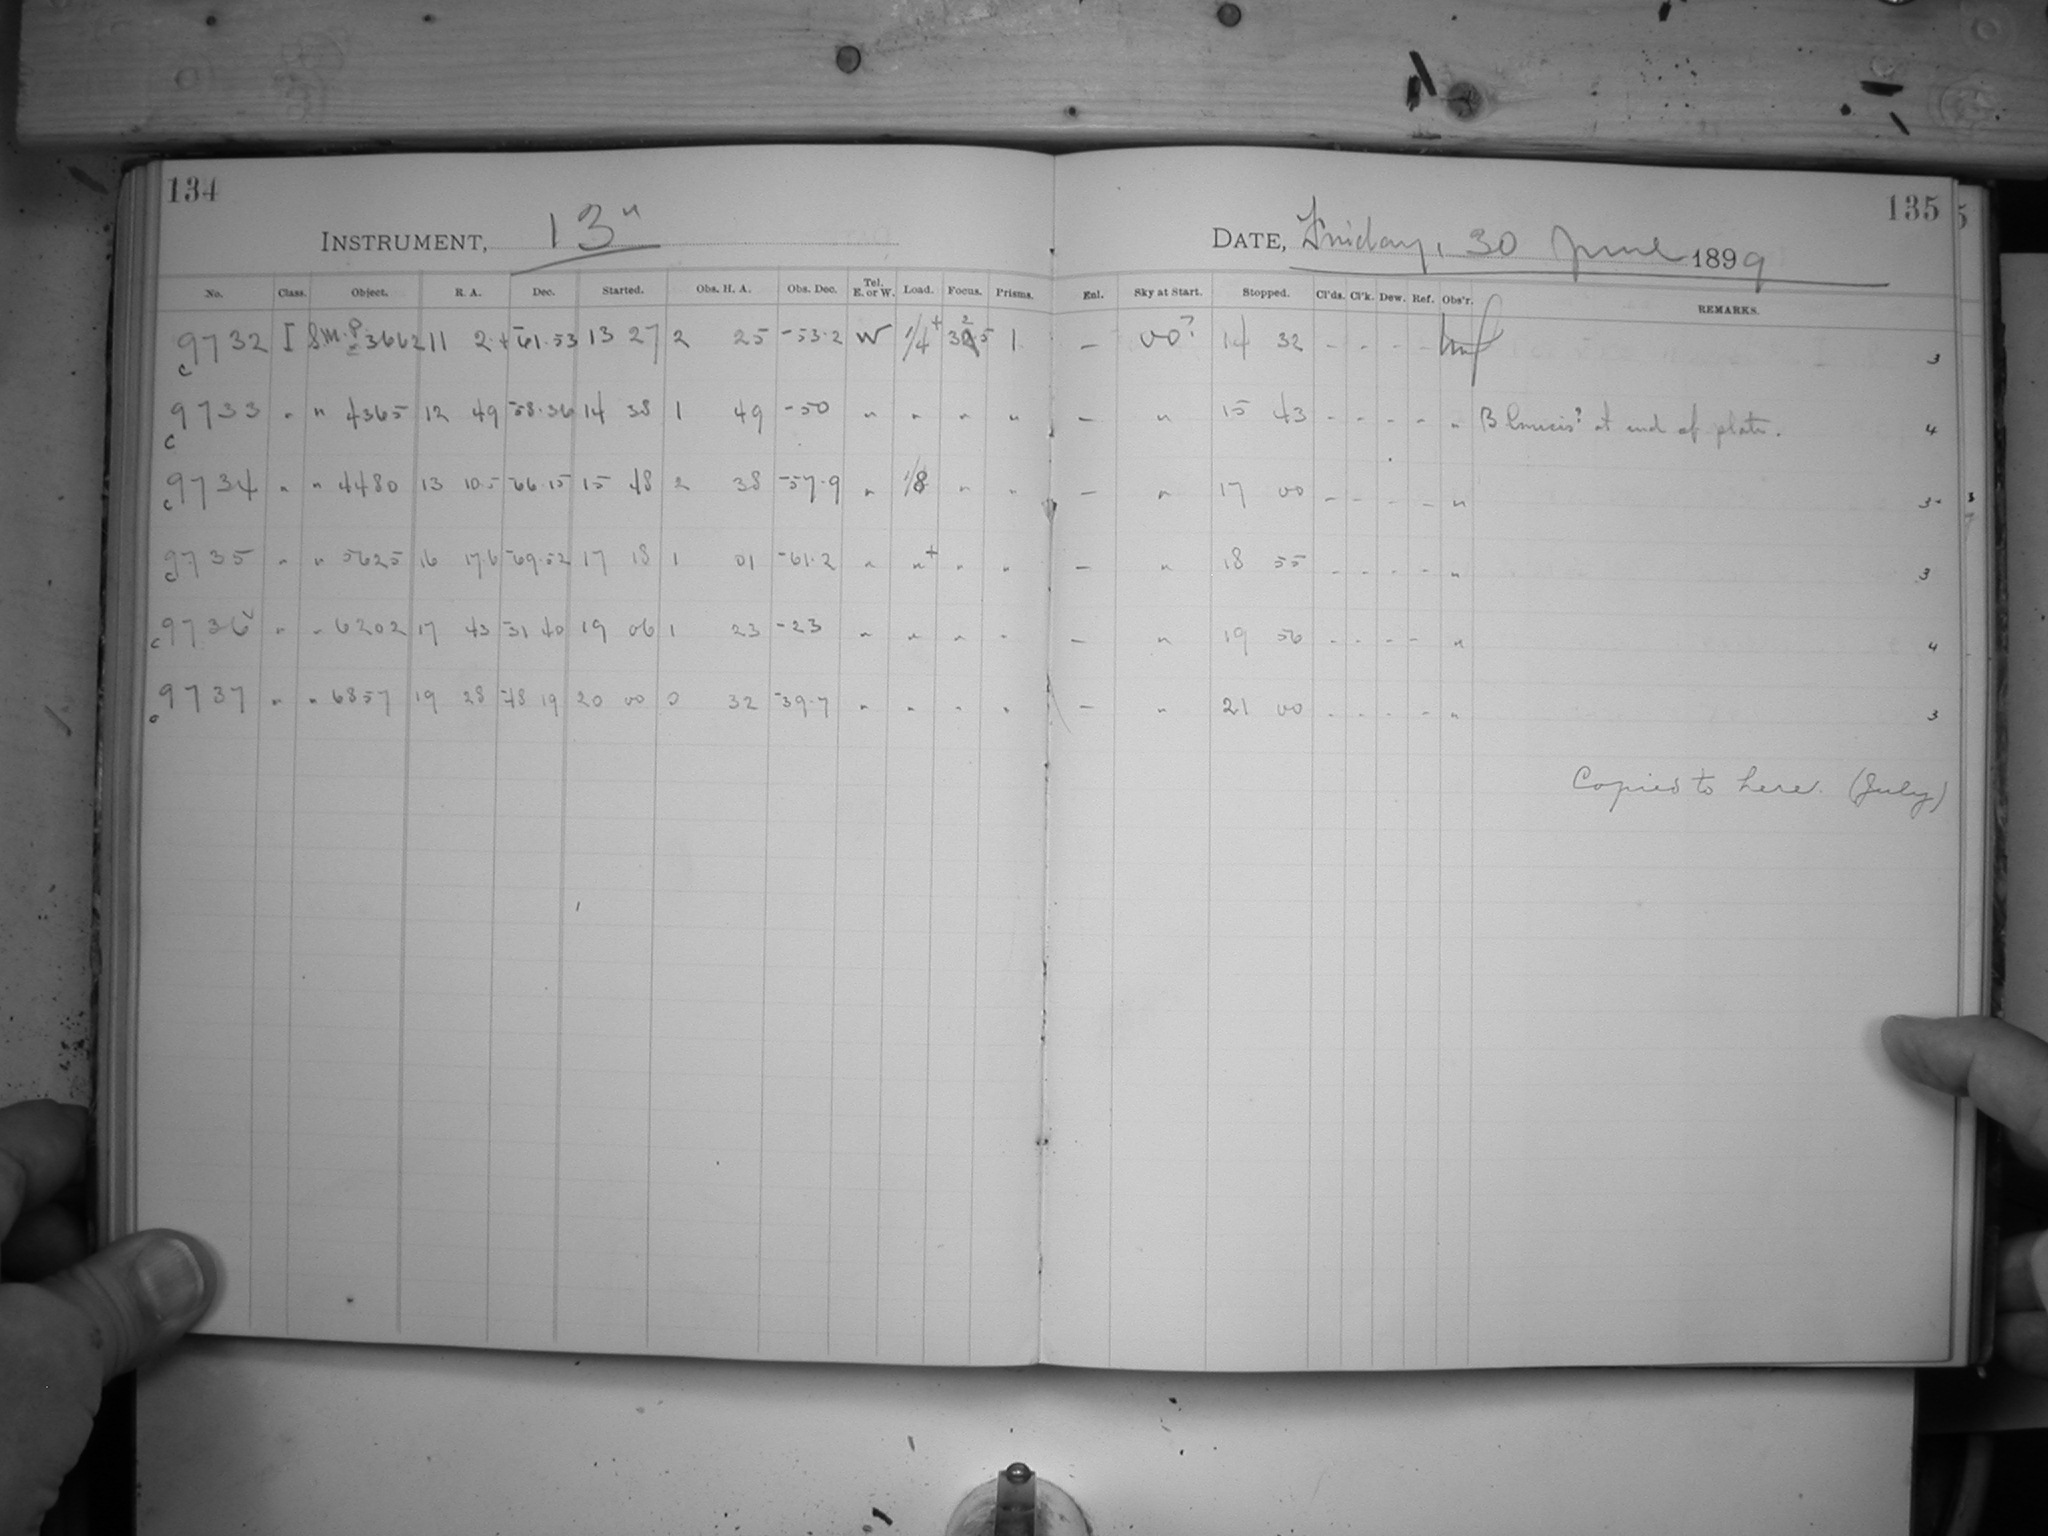 134
135
INSTRUMENT, 13"
DATE, Friday, 30 June 1899
No. Class. Object. R. A. Dec. Started. Obs. H. A. Obs. Dec. Tel. E. or W. Load. Focus. Prisms. Enl. Sky at Start. Stopped. Cl'ds. Cl'k. Dew. Ref. Obs'r. REMARKS.
c 9732 I S.M.P. 3662 11 2+ -61.53 13 27 2 25 -53.2 W 1/4+ 1 – 00? 14 32 - - - - 3
c 9733 " " 4365 12 49 -58.36 14 38 1 49 -50 " " " " – " 15 43 - - - - " B Crucis? at end of plate. 4
c 9734 " " 4480 13 10.5 -66.15 15 48 2 38 -57.9 " 1/8 " " – " 17 00 - - - - " 3-
c 9735 " " 5625 16 17.6 -69.52 17 18 1 01 -61.2 " "+ " " – " 18 55 - - - - " 3
c 9736 " " 6202 17 43 -31 40 19 06 1 23 -23 " " " " – " 19 56 - - - - " 4
c 9737 " " 6857 19 28 -48 19 20 00 0 32 -39.7 " " " " – " 21 00 - - - - " 3
Copied to here. (July)